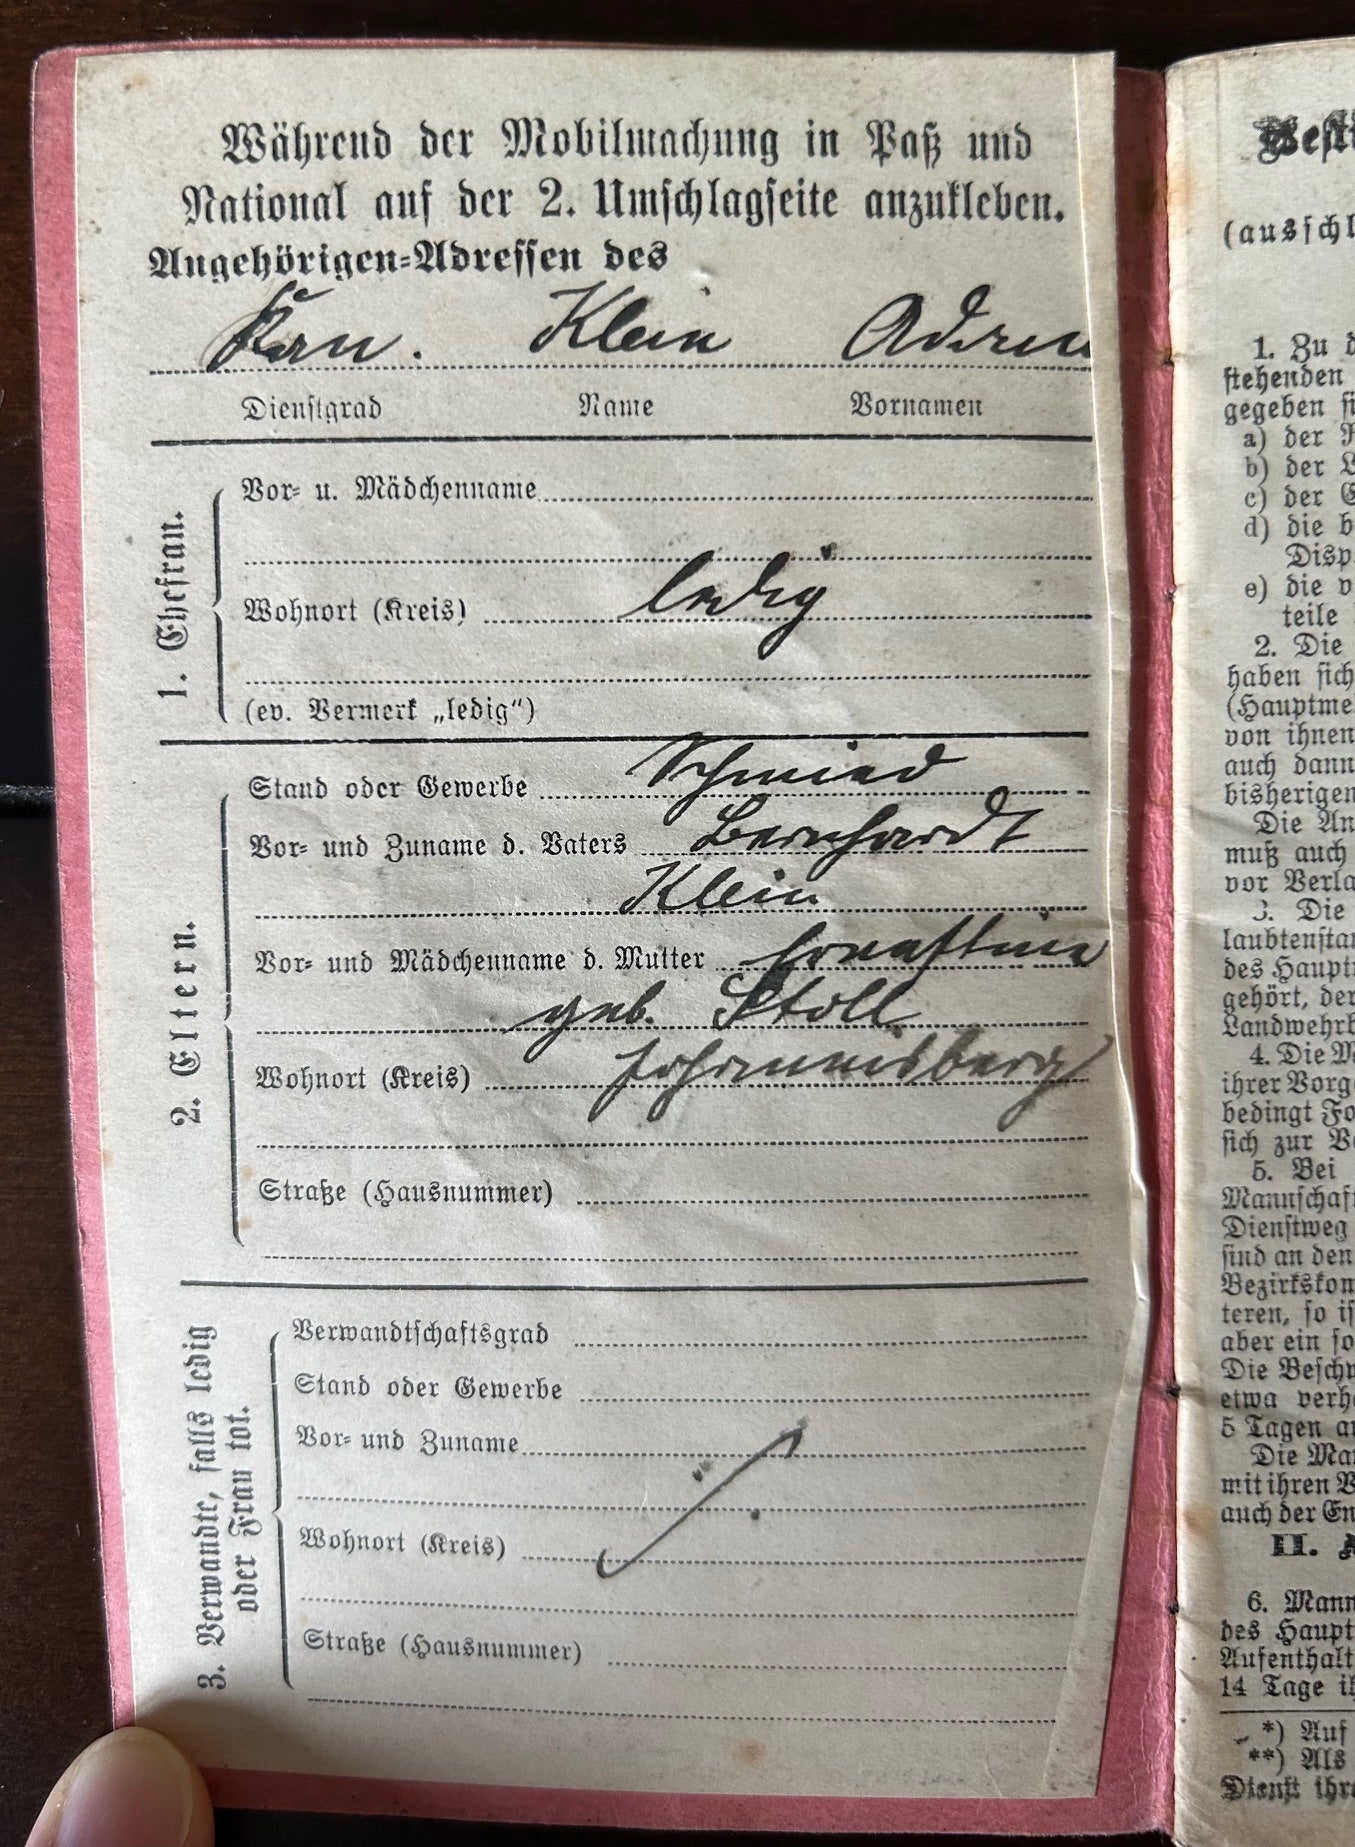 Während der Mobilmachung in Paß und
National auf der 2. Umschlagseite anzukleben.
Angehörigen-Adressen des
Kan. Klein
Dienstgrad Name Vornamen
1. Ehefrau.
Vor- u. Mädchenname
Wohnort (Kreis) ledig
(ev. Vermerk „ledig“)
2. Eltern.
Stand oder Gewerbe Schmied
Vor- und Zuname d. Vaters Bernhardt
Klein
Vor- und Mädchenname d. Mutter Ernestine
geb. Stoll
Wohnort (Kreis) Johannisberg
Straße (Hausnummer)
3. Verwandte, falls ledig
oder Frau tot.
Verwandtschaftsgrad
Stand oder Gewerbe
Vor- und Zuname
Wohnort (Kreis)
Straße (Hausnummer)
(ausschl
1. Zu d
stehenden
gegeben si
a) der R
b) der L
c) der G
d) die b
Disp
e) die v
teile
2. Die
haben sich
(Hauptme
von ihnen
auch dann
bisherigen
Die An
muß auch
vor Verla
3. Die
laubtenstan
des Hauptm
gehört, der
Landwehrb
4. Die M
ihrer Vorge
bedingt Fo
sich zur Ve
5. Bei
Mannschaft
Dienstweg
sind an den
Bezirkskom
teren, so is
aber ein so
Die Beschw
etwa verh
5 Tagen an
Die Man
mit ihren V
auch der En
II. A
6. Mann
des Haupt
Aufenthalt
14 Tage ih
*) Auf
**) Als
Dienst ihre